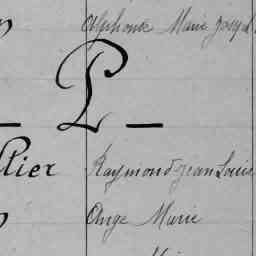 Alphonse Marie Joseph
— P —
llier Raymond Jean Louis
Ange Marie